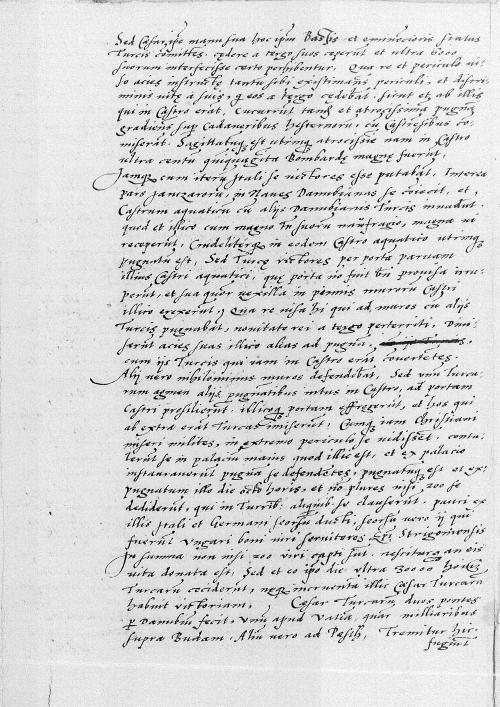 Sed Cæsar, ipse manu sua hoc ipsum et eminentioris status
Turcis comittens. cædere a tergo suos cæperit et ultra 6000
suorum interfecisse certo perhibentur. Qua re et periculo vi-
so acies instructe tantũ sibi existimans periculi, et discri-
minis vitę a suis, q eos a tergo cędebãt, sicut et ab illis
qui in Castro erãt, Cucurrit tandẽ et atrocissima pugna,
gradiens sup Cadaveribus hesternorũ, cũ Castrẽsibus co-
miserãt. Sagittabatur est utrinq atrocissie nam in Castro
ultra centũ quiquagĩta Bombardę magnę fuerũt,
Jamq cum iterũ Itali se victores esse putabãt, Interea
pars Janczarorũ, in Naves Danubianas se coiecit, et,
Castrum aquaticũ cũ alijs Danubianis Turcis invadũt.
quod et illico cum magno in suorũ naufragio, magna vi
receperũt, Crudeliterq in eodem Castro aquatico utrinq
pugnatũ est, Sed Turcę victores per porta parvam
illius Castri aquatici, quę porta nõ fuit bñ provisa irru-
perũt, et sua quor vexilla in pennis murorũ Castri
illico erexerũt, Qua re visa hi qui ad muros cũ alijs
Turcis pugnabãt, novitate rei a tergo perterriti, Divi-
serũt acies suas illico alias ad pugnã,
cum ijs Turcis qui iam in Castro erãt covertẽtes.
Alij vero nihilominus muros defendebãt, Sed unũ Turca-
rum agmen alijs pugnãtibus intus in Castro, ad portam
Castri prosilierũt. illicoq portam effregerũt, et hos qui
ab extra erãt Turcas imiserũt. Cumq iam Christiani
miseri milites, in extremo periculo se vidisset. contu-
lerũt se in palaciũ maius quod illic est, et ex palacio
instauraverũt pugnã se defendẽtes, pugnatuq est et ex-
pugnatum illo die octo horis, et nõ plures nisi 200 se
dediderũt, qui in Turrib. aliquib. se clauserũt. pauci ex
illis Itali et Germani seorsũ ducti, seorsũ vero ij qui
fuerũt Ungari boni viri servitores Strigoniensis
In summa non nisi 200 vivi capti sũt. nescitur an eis
vita donata est, Sed et eo ipo die ultra 30000
Turcarũ ceciderũt, neq incruentã illic Cæsar Turcarũ
habuit victoriam, Cæsar Turcarũ duos pontes
p Danubiũ fecit, unũ apud Vatiã, quatr milliaribus
supra Budam. Aliũ vero ad Pesth, Tremitur hic
fugiũt